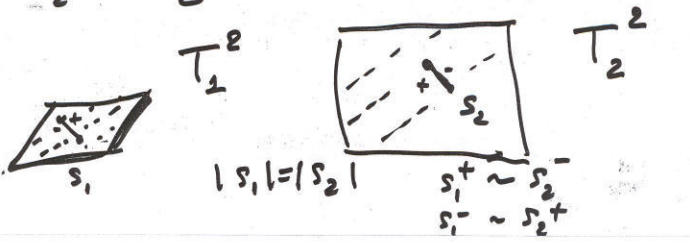 T₁² T₂²
+ + - s₂
s₁ |s₁|=|s₂| s₁⁺ ~ s₂⁻
s₁⁻ ~ s₂⁺